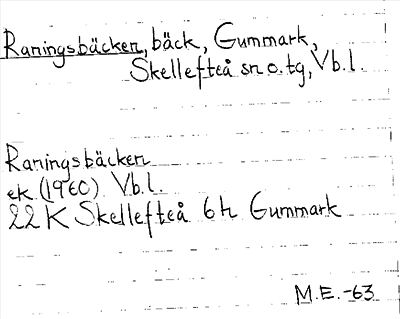 Raningsbäcken, bäck, Gummark,
Skellefteå sn o. tg, Vb.l.
Raningsbäcken
ek (1960) Vb.l.
22 K Skellefteå 6h Gummark
M.E. -63